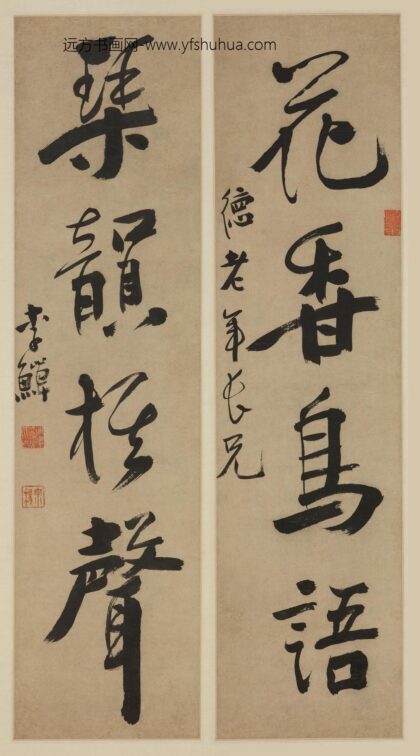 远方书画网-www.yfshuhua.com
花香鳥語
德老年長兄
琹韻棋聲
李鱓